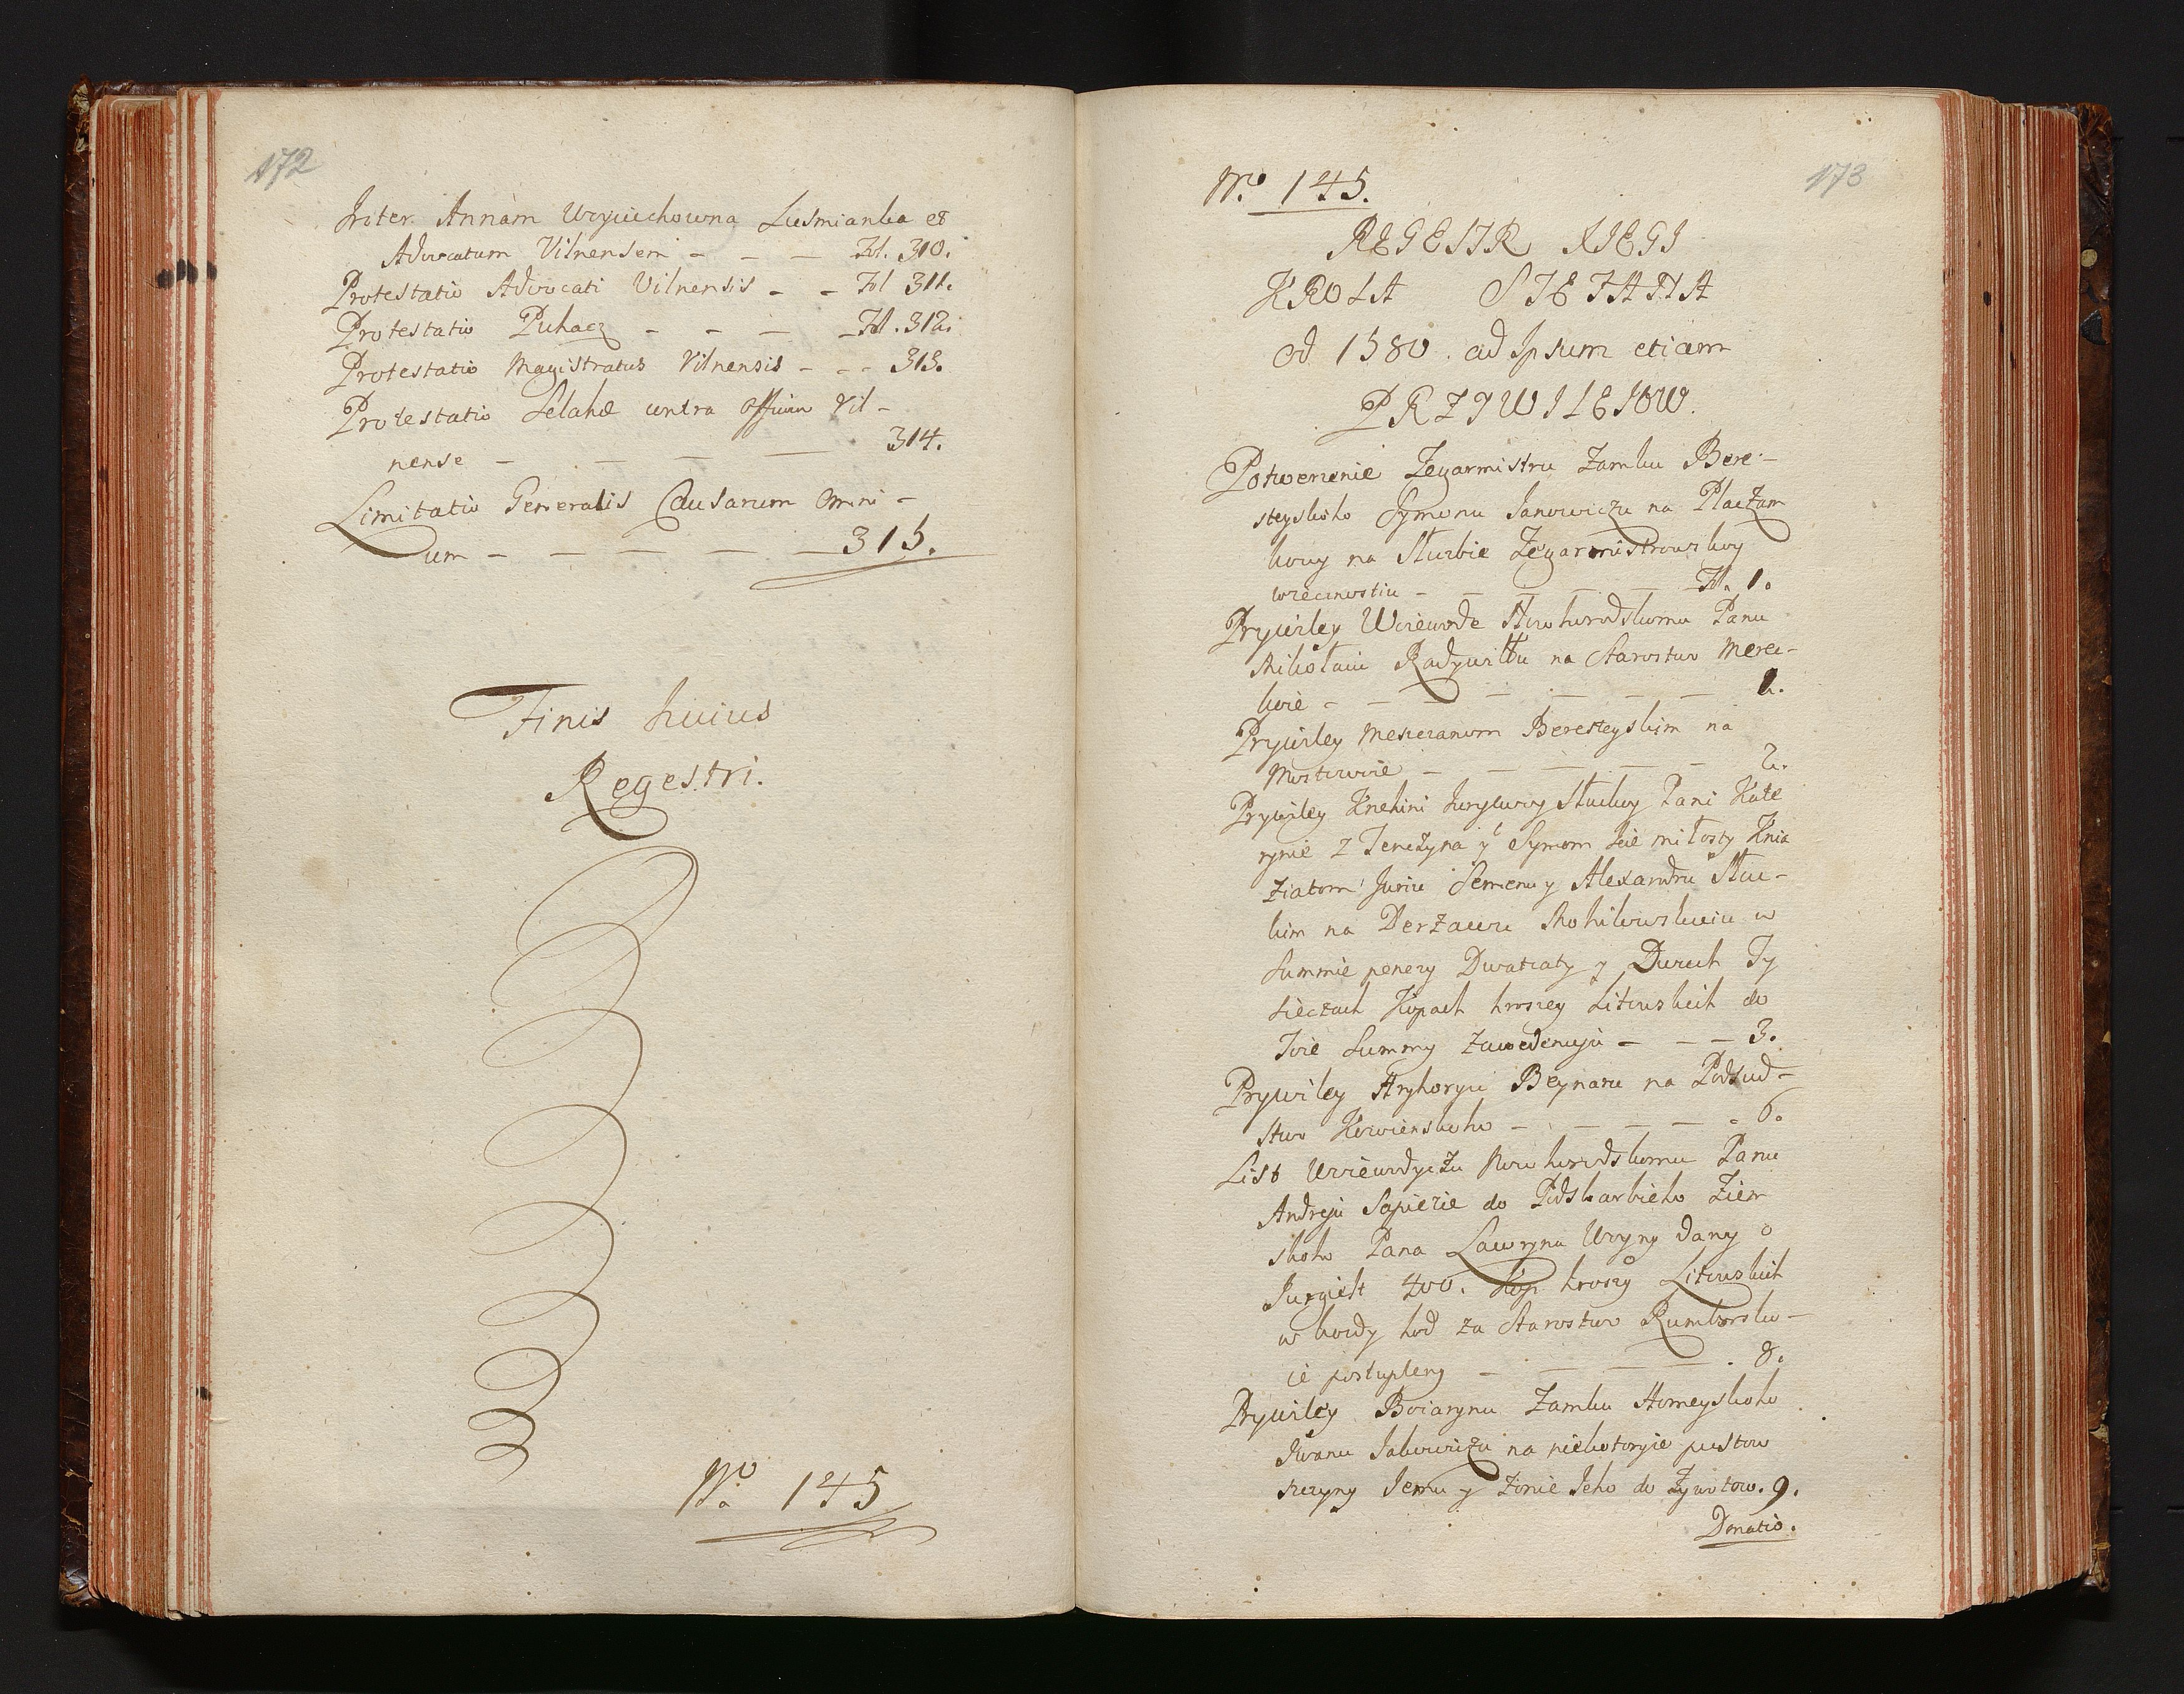 172
Inter Annam Woyciechowna Lusmianka et
Advocatum Vilnensem - - - Fol. 310.
Protestatio Advocati Vilnensis - - Fol 311.
Protestatio Puhacz - - - Fol. 312.
Protestatio Magistratus Vilnensis - - - 313.
Protestatio contra Officium Vil-
nense - - - - 314.
Limitatio Generalis Causarum Omni-
um - - - - - 315.
Finis huius
Regestri.
No 145
173
No 145.
REGESTR XIEGI
KROLA STEFANA
od 1580. ad Ipsum etiam
PRZYWILEIOW.
Potwerzenie Zegarmistru Zamku Bere-
steyskoho Symonu Janowiczu na Plac Zam
kowy na Służbie Zegarmistrowskoy
wiecznostiu - - - - - Fol. 1.
Prywiley Woiewode Nowhorodskomu Panu
Mikołaiu Radywiłłu na Starostwo Merec-
koie - - - - - - 1.
Prywiley Meszczanom Beresteyskim na
Mostowoie - - - - - 2.
Prywiley Knehini Jurylwoy Słuckoy Pani Kate
rynie z Tenczyna y Synom Jeie miłosty Knia
ziatom Juriu Semenu y Alexandru Słuc-
kim na Derzawu Mohilowskuiu w
Summie penezy Dwatcaty y Dwuch Ty
sieczach Kopach hroszey Litowskich do
Toie Summy zawedenuju - - - 3.
Prywiley Hryhoryu Beynaru na Podsud-
stwo Kowienskoho - - - - - 6.
List Woiewodyczu Nowhorodskomu Panu
Andreju Sapiezie do Podskarbieho Ziem
skoho Pana Lawryna Woyny dany o
Jurgielt 400. Kop hroszy Litowskich
w kozdy hod za Starostwo Rumborsko-
ie postupleny - - - - 8.
Prywiley Boiarynu Zamku Homeyskoho
Iwanu Jakowiczu na niekotoryie pustow
szczyny Jemu y żonie Jeho do Zywotow. 9.
Donatio.